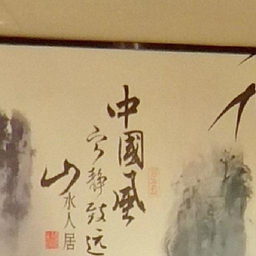 中國風
宁静致远
山水人居